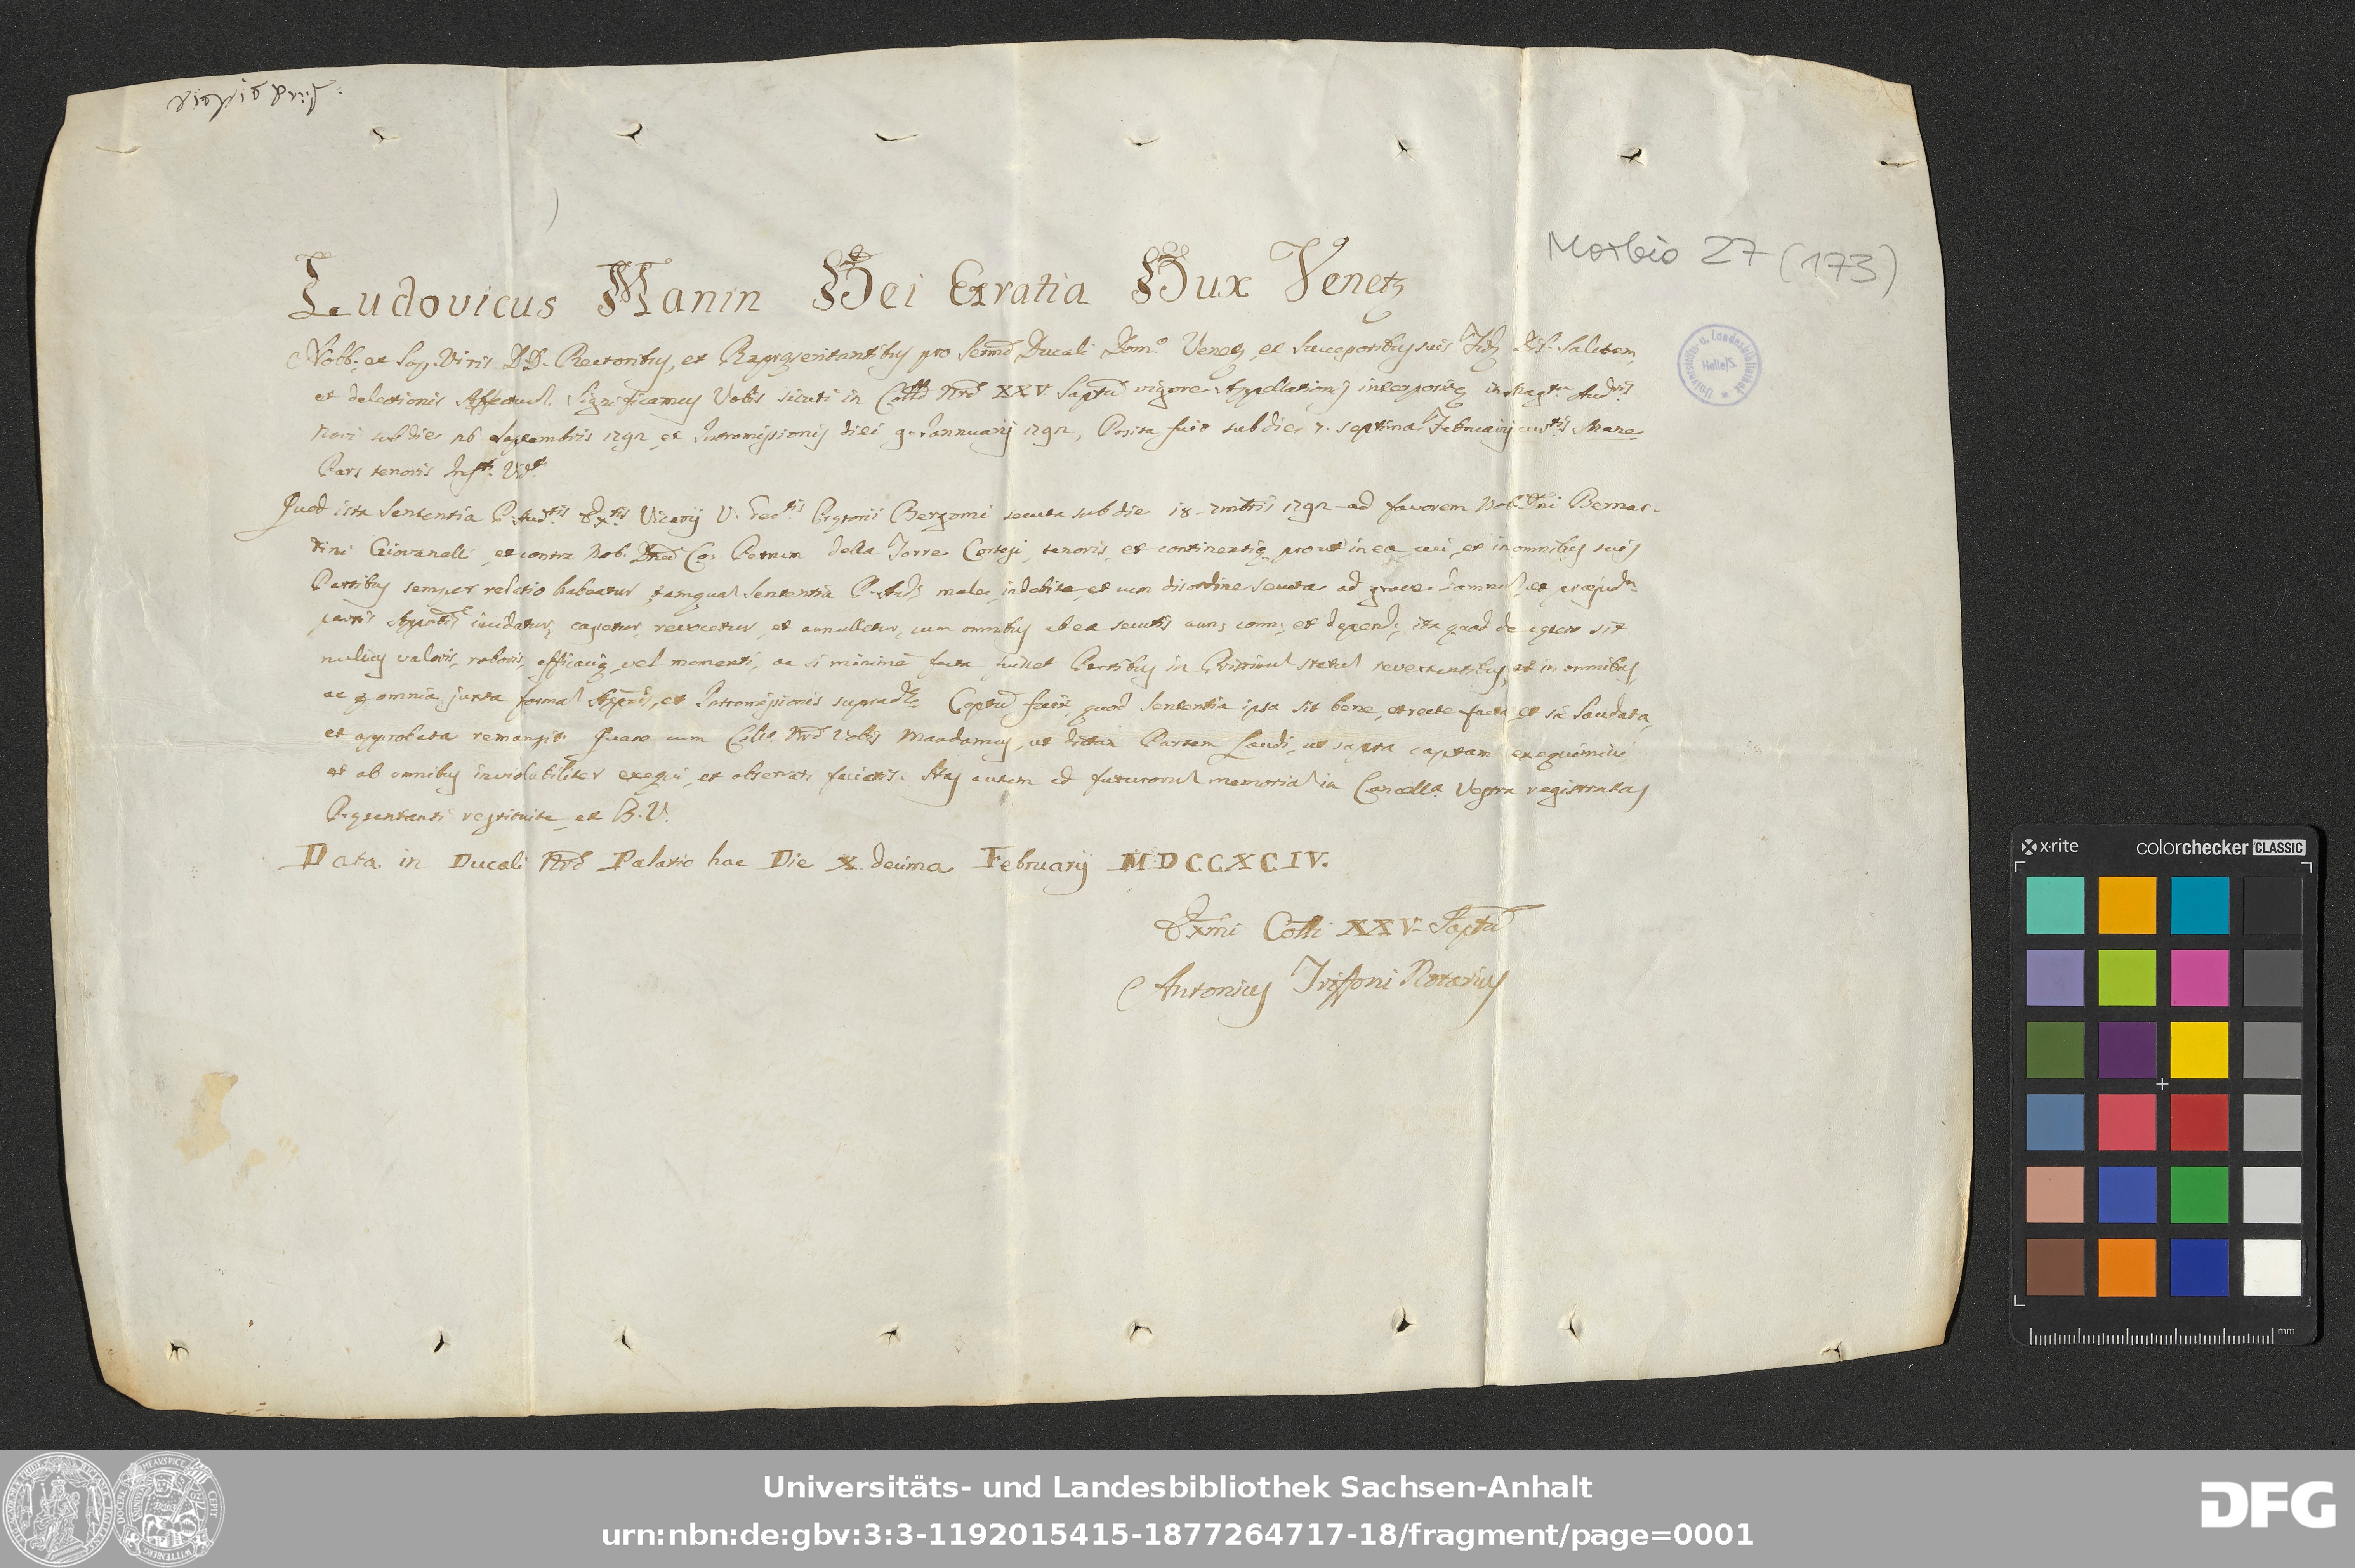 Morbio 27 (173)
Ludovicus Manin Dei Gratia Dux Venetz
Nobb: et Sap. Viris DD. Rectoribus, et Rapresentantibus pro Sermo Ducali Dom.º Venetz, et Successoribus suis Fid. Dil. Salutem,
et delectionis Affectum. Significamus Vobis sicuti in Collo Nro XXV. Saptu vigore Appellationis interpositæ in Mag.tu
Novi sub die 26 Septembris 1792 et Intromissionis diei 9. Jannuarij 1792, Posita fuit sub die 7. septima Februarij Mane
Pars tenoris
Quod ista Sententia Vicarij Prætorii Bergomi secuta sub die 18. 7mbris 1792 ad favorem Nob. Dni Bernar-
dini Giovanelli, et contra Nob. Dnum Co: Petrum della Torre tenoris, et continentiæ, prout in ea, cui, et in omnibus suis
Partibus semper relatio habeatur, tamquam Sententia male, indebite, et cum disordine secuta ad grave damnum, et præjud.m
partis incidatur, cassetur, revocetur, et annulletur, cum omnibus ab ea secutis ann: conn: et depend: ita quod de cætero sit
nullius valoris, roboris, efficaciæ, vel momenti, ac si minime facta fuisset Partibus in Pristinum statum revertentibus, et in omnibus,
ac p omnia juxta formam et Intromissionis supradte. Captu fuit, quod Sententia ipsa sit bene, et recte facta, et sic laudata,
et approbata remansit. Quare cum Collo Nro Vobis Mandamus, ut dictam Partem Laudi, ut supra captam exequimini
et ab omnibus inviolabiliter exequi, et observari faciatis. Has autem ad futurorum memoriam in Cancella Vestra registratas
Præsentanti restituite, et B. V.
Data in Ducali Nro Palatio hac Die X. decima Februarij MDCCXCIV.
Exmi Colli XXV. Saptu
Antonius Triffoni Notarius
Universitäts- u. Landesbibliothek Halle/S
x-rite colorchecker CLASSIC
mm
Universitäts- und Landesbibliothek Sachsen-Anhalt
urn:nbn:de:gbv:3:3-1192015415-1877264717-18/fragment/page=0001
DFG